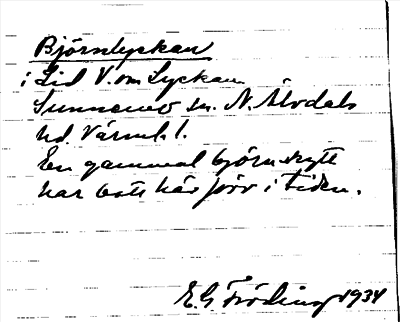 Björnlyckan
i Lid V. om Lyckan
Sunnemo sn. N. Älvdals
hd. Värml.
En gammal björnskytt
har bott här förr i tiden.
E. G. Fröding 1934